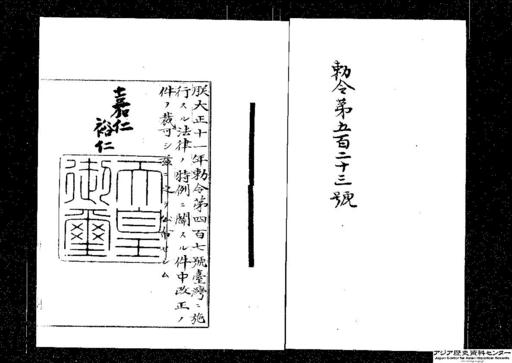 勅令第五百二十三號
朕大正十一年勅令第四百七號臺灣ニ施
行スル法律ノ特例ニ關スル件中改正ノ
件ヲ裁可シ茲ニ之ヲ公布セシム
嘉仁
裕仁
天皇
御璽
アジア歴史資料センター
Japan Center for Asian Historical Records